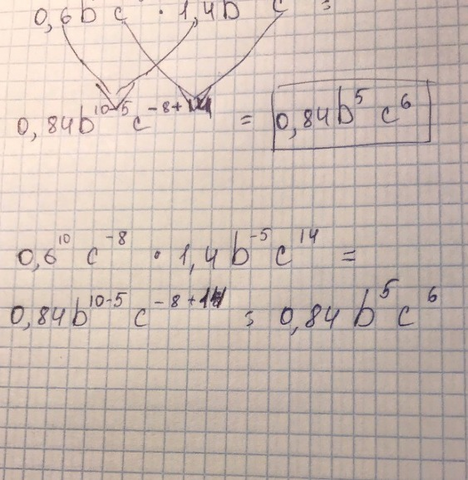 0,6b c · 1,4b c =
0,84b^10-5 c^-8+14 = 0,84b^5 c^6
0,6^10 c^-8 · 1,4b^-5 c^14 =
0,84b^10-5 c^-8+14 = 0,84b^5 c^6